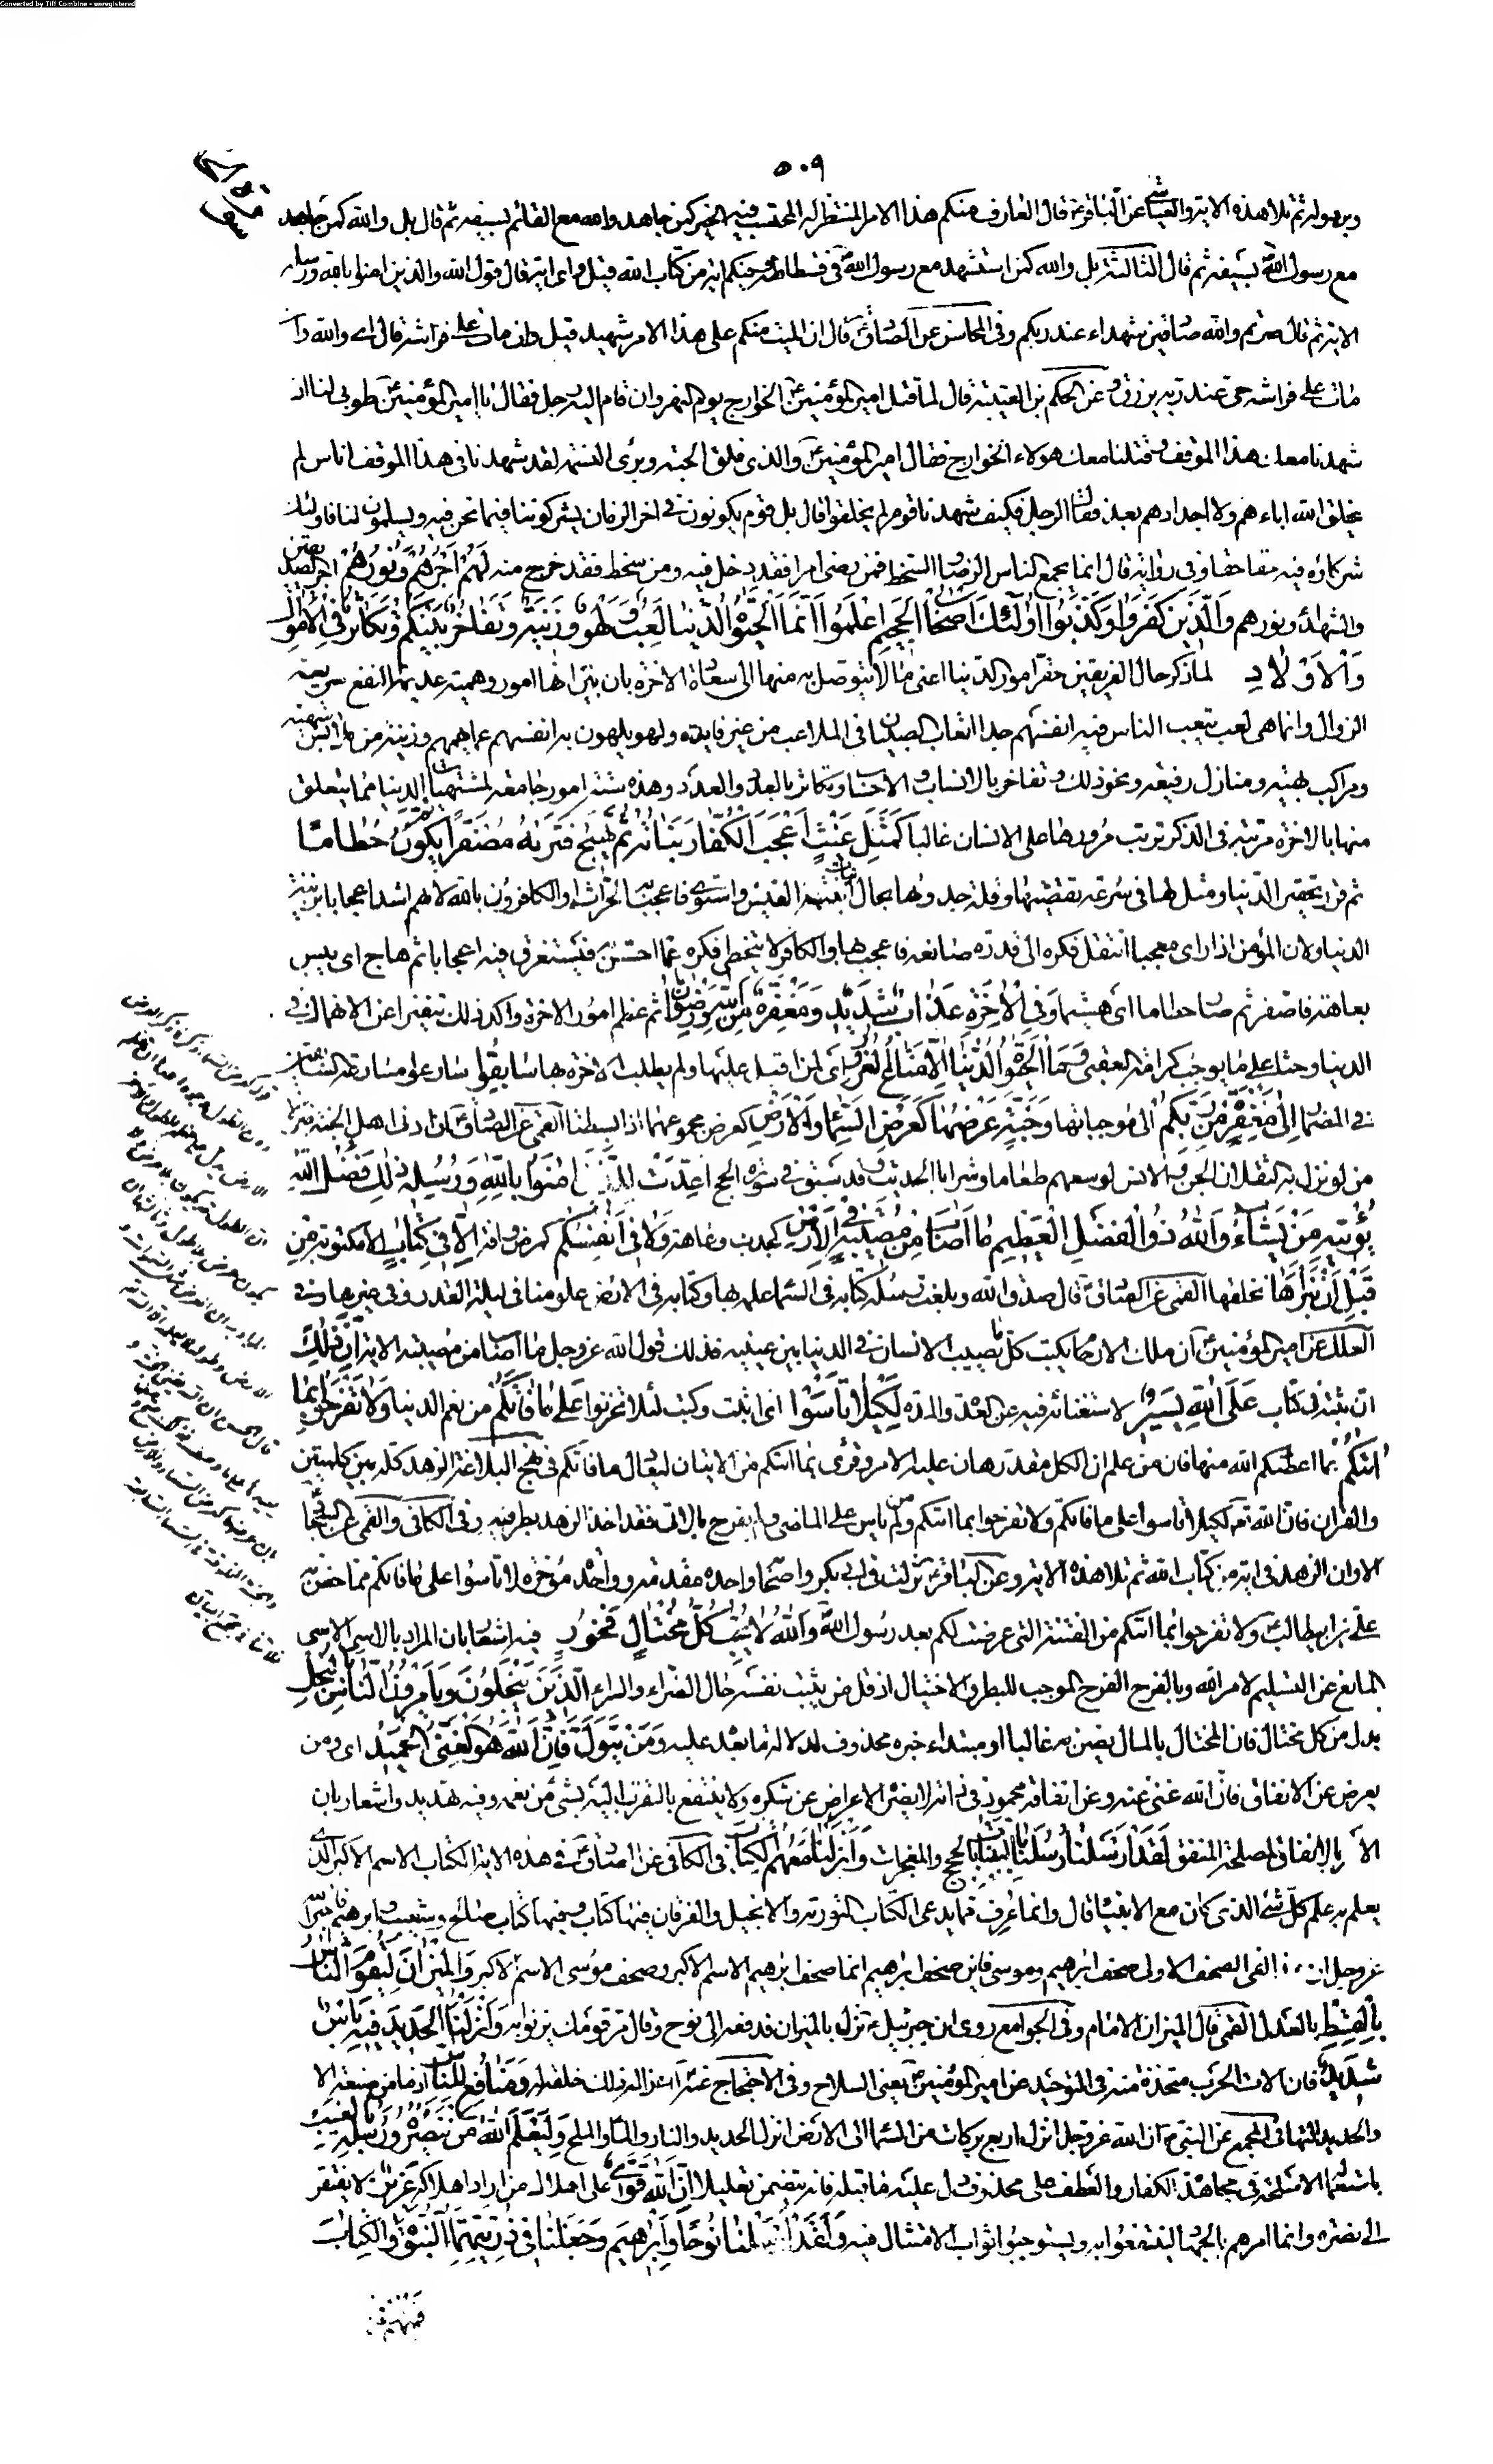 Converted by Tiff Combine - unregistered
٥٠٩
ورسوله ثم تلا هذه الاية والعياشي عن الباقر ع قال العارف منكم هذا الامر المنتظر له المحتسب فيه الخير كمن جاهد والله مع القائم بسيفه ثم قال بل والله كمن جاهد
مع رسول الله بسيفه ثم قال الثالثة بل والله كمن استشهد مع رسول الله في فسطاطه وفيكم اية من كتاب الله قيل واى اية قال قول الله والذين امنوا بالله ورسله
الاية ثم قال صرتم والله صادقين شهداء عند ربكم وفى المحاسن عن الصادق ع قال ان الميت منكم على هذا الامر شهيد قيل وان مات على فراشه قال اى والله وان
مات على فراشه حى عند ربه يرزق وعن الحكم بن العيينة قال لما قتل امير المؤمنين ع الخوارج يوم النهروان قام اليه رجل فقال يا امير المؤمنين ع طوبى لنا اذ
شهدنا معك هذا الموقف وقتلنا معك هولاء الخوارج فقال امير المؤمنين ع والذى فلق الحبة وبرئ النسمة لقد شهدنا فى هذا الموقف اناس لم
يخلق الله اباءهم ولا اجدادهم بعد فقال الرجل فكيف شهدنا قوم لم يخلقوا قال بل قوم يكونون فى اخر الزمان يشركوننا فيما نحن فيه ويسلمون لنا فاولئك
شركاؤه فيه حقا حقا وفى رواية قال انما يجمع الناس الرضا والسخط فمن رضى امرا فقد دخل فيه ومن سخط فقد خرج منه لَهُمْ اَجْرُهُمْ وَنُورُهُمْ اجر الصديقين
والشهداء ونورهم وَالَّذينَ كَفَرُوا وَكَذَّبُوا اُولٰئِكَ اَصْحٰابُ الْجَحيمِ اِعْلَمُوا اَنَّمَا الْحَيٰوةُ الدُّنْيٰا لَعِبٌ وَلَهْوٌ وَزينَةٌ وَتَفٰاخُرٌ بَيْنَكُمْ وَتَكٰاثُرٌ فِى الْاَمْوٰالِ
وَالْاَوْلٰادِ لما ذكر حال الفريقين حقر امور الدنيا اعنى ما لا يتوصل به منها الى سعادة الاخرة بان بين انها امور وهمية عديمة النفع سريعة
الزوال وانما هى لعب يتعب الناس فيه انفسهم جدا اتعاب الصبيان فى الملاعب من غير فايدة ولهو يلهون به انفسهم عما يهمهم وزينة من ملابس شهية
ومراكب بهية ومنازل رفيعة ونحو ذلك وتفاخر بالانساب والاحساب وتكاثر بالعدد والعدد وهذه ستة امور جامعة لمشتهيات الدنيا مما يتعلق
منها بالاخرة مرتبة فى الذكر ترتب مرورها على الانسان غالبا كَمَثَلِ غَيْثٍ اَعْجَبَ الْكُفّٰارَ نَبٰاتُهُ ثُمَّ يَهيجُ فَتَرٰيهُ مُصْفَرًّا ثُمَّ يَكُونُ حُطٰاماً
ثم قرر تحقير الدنيا ومثل لها فى سرعة تقضيها وقلة جدواها بحال نبات انبته الغيث واستوى فاعجب به الحراث او الكافرون بالله لانهم اشد اعجابا بزينة
الدنيا ولان المؤمن اذا راى معجبا انتقل فكره الى قدرة صانعه فاعجب بها والكافر لا يتخطى فكره عما احس به فيستغرق فيه اعجابا ثم هاج اى يبس
بعاهة فاصفر ثم صار حطاما اى هشيما وَفِى الْاٰخِرَةِ عَذٰابٌ شَديدٌ وَمَغْفِرَةٌ مِنَ اللهِ وَرِضْوٰانٌ ثم عظم امور الاخرة واكد ذلك تنفيرا عن الانهماك فى
الدنيا وحثا على ما يوجب كرامة العقبى وَمَا الْحَيٰوةُ الدُّنْيٰا اِلّٰا مَتٰاعُ الْغُرُورِ اى لمن اقبل عليها ولم يطلب الاخرة بها سٰابِقُوا سارعوا مسارعة السابقين
فى المضمار اِلىٰ مَغْفِرَةٍ مِنْ رَبِّكُمْ الى موجباتها وَجَنَّةٍ عَرْضُهٰا كَعَرْضِ السَّمٰاءِ وَالْاَرْضِ كعرض مجموعهما اذا بسطتا القمى عن الصادق ع ان ادنى اهل الجنة منزلا
من لو نزل به الثقلان الجن والانس لوسعهم طعاما وشرابا الحديث وقد سبق فى سورة الحج اُعِدَّتْ لِلَّذينَ اٰمَنُوا بِاللهِ وَرُسُلِهِ ذٰلِكَ فَضْلُ اللهِ
يُؤْتيهِ مَنْ يَشٰاءُ وَاللهُ ذُو الْفَضْلِ الْعَظيمِ مٰا اَصٰابَ مِنْ مُصيبَةٍ فِى الْاَرْضِ كجدب وعاهة وَلٰا فى اَنْفُسِكُمْ كمرض وافة اِلّٰا فى كِتٰابٍ الا مكتوبة مِنْ
قَبْلِ اَنْ نَبْرَاَهٰا نخلقها القمى عن الصادق ع قال صدق الله وبلغت رسله كتابه فى السماء علمه بها وكتابه فى الارض علومنا فى ليلة القدر وفى غيرها وفى
العلل عن امير المؤمنين ع ان ملك الارحام يكتب كل ما يصيب الانسان فى الدنيا بين عينيه فذلك قول الله عز وجل ما اصاب من مصيبة الاية اِنَّ ذٰلِكَ
ان ثبته فى كتاب عَلَى اللهِ يَسيرٌ لاستغنائه فيه عن العدة والمدة لِكَيْلٰا تَاْسَوْا اى اثبت وكتب لئلا تحزنوا عَلىٰ مٰا فٰاتَكُمْ من نعم الدنيا وَلٰا تَفْرَحُوا بِمٰا
اٰتٰيكُمْ بما اعطيكم الله منها فان من علم ان الكل مقدر هان عليه الامر وقرئ بما اتيكم من الاتيان ليعادل ما فاتكم فى نهج البلاغة الزهد كله بين كلمتين
والقران قال الله تع لكيلا تاسوا على ما فاتكم ولا تفرحوا بما اتيكم ومن لم ياس على الماضى ولم يفرح بالاتى فقد اخذ الزهد بطرفيه وفى الكافى والقمى عن السجاد ع
الا وان الزهد فى اية من كتاب الله ثم تلا هذه الاية وعن الباقر ع نزلت فى ابى بكر واصحابه واحدة مقدمة وواحدة مؤخرة لا تاسوا على ما فاتكم مما خص به
على بن ابى طالب ع ولا تفرحوا بما اتيكم من الفتنة التى عرضت لكم بعد رسول الله ص وَاللهُ لٰا يُحِبُّ كُلَّ مُخْتٰالٍ فَخُورٍ فيه اشعار بان المراد بالاسى الاسى
المانع عن التسليم لامر الله وبالفرح الفرح الموجب للبطر والاختيال اذ قل من يثبت نفسه حال الضراء والسراء اَلَّذينَ يَبْخَلُونَ وَيَاْمُرُونَ النّٰاسَ بِالْبُخْلِ
بدل من كل مختال فان المختال بالمال يضن به غالبا او مبتداء خبره محذوف لدلالة ما بعده عليه وَمَنْ يَتَوَلَّ فَاِنَّ اللهَ هُوَ الْغَنِىُّ الْحَميدُ اى ومن
يعرض عن الانفاق فان الله غنى عنه وعن انفاقه محمود فى ذاته لا يضره الاعراض عن شكره ولا ينتفع بالتقرب اليه بشئ من نعمه وفيه تهديد واشعار بان
الامر بالانفاق لمصلحة المنفق لَقَدْ اَرْسَلْنٰا رُسُلَنٰا بِالْبَيِّنٰاتِ بالحجج والمعجزات وَاَنْزَلْنٰا مَعَهُمُ الْكِتٰابَ فى الكافى عن الصادق ع فى هذه الاية الكتاب الاسم الاكبر الذى
يعلم به علم كل شئ الذى كان مع الانبياء قال وانما عرف مما يدعى الكتاب التورية والانجيل والفرقان فيها كتاب نوح وفيها كتاب صالح وشعيب وابرهيم فاخبر الله
عز وجل ان هذا لفى الصحف الاولى صحف ابرهيم وموسى فاين صحف ابرهيم انما صحف ابرهيم الاسم الاكبر وصحف موسى الاسم الاكبر وَالْميزٰانَ لِيَقُومَ النّٰاسُ
بِالْقِسْطِ بالعدل القمى قال الميزان الامام وفى الجوامع روى ان جبرئيل ع نزل بالميزان فدفعه الى نوح وقال مر قومك يزنوا به وَاَنْزَلْنَا الْحَديدَ فيهِ بَاْسٌ
شَديدٌ فان الات الحرب متخذة منه فى التوحيد عن امير المؤمنين ع يعنى السلاح وفى الاحتجاج عنه ع انزاله ذلك خلقه له وَمَنٰافِعُ لِلنّٰاسِ اذ ما من صنعة الا
والحديد التها فى المجمع عن النبى ص ان الله عز وجل انزل اربع بركات من السماء الى الارض انزل الحديد والنار والماء والملح وَلِيَعْلَمَ اللهُ مَنْ يَنْصُرُهُ وَرُسُلَهُ بِالْغَيْبِ
باستعمال الاسلحة فى مجاهدة الكفار والعطف على محذوف دل عليه ما قبله فانه يتضمن تعليلا اِنَّ اللهَ قَوِىٌّ على اهلاك من اراد اهلاكه عَزيزٌ لا يفتقر
الى نصرة وانما امرهم بالجهاد لينتفعوا به ويستوجبوا ثواب الامتثال فيه وَلَقَدْ اَرْسَلْنٰا نُوحاً وَاِبْرٰهيمَ وَجَعَلْنٰا فى ذُرِّيَّتِهِمَا النُّبُوَّةَ وَالْكِتٰابَ
فمنهم